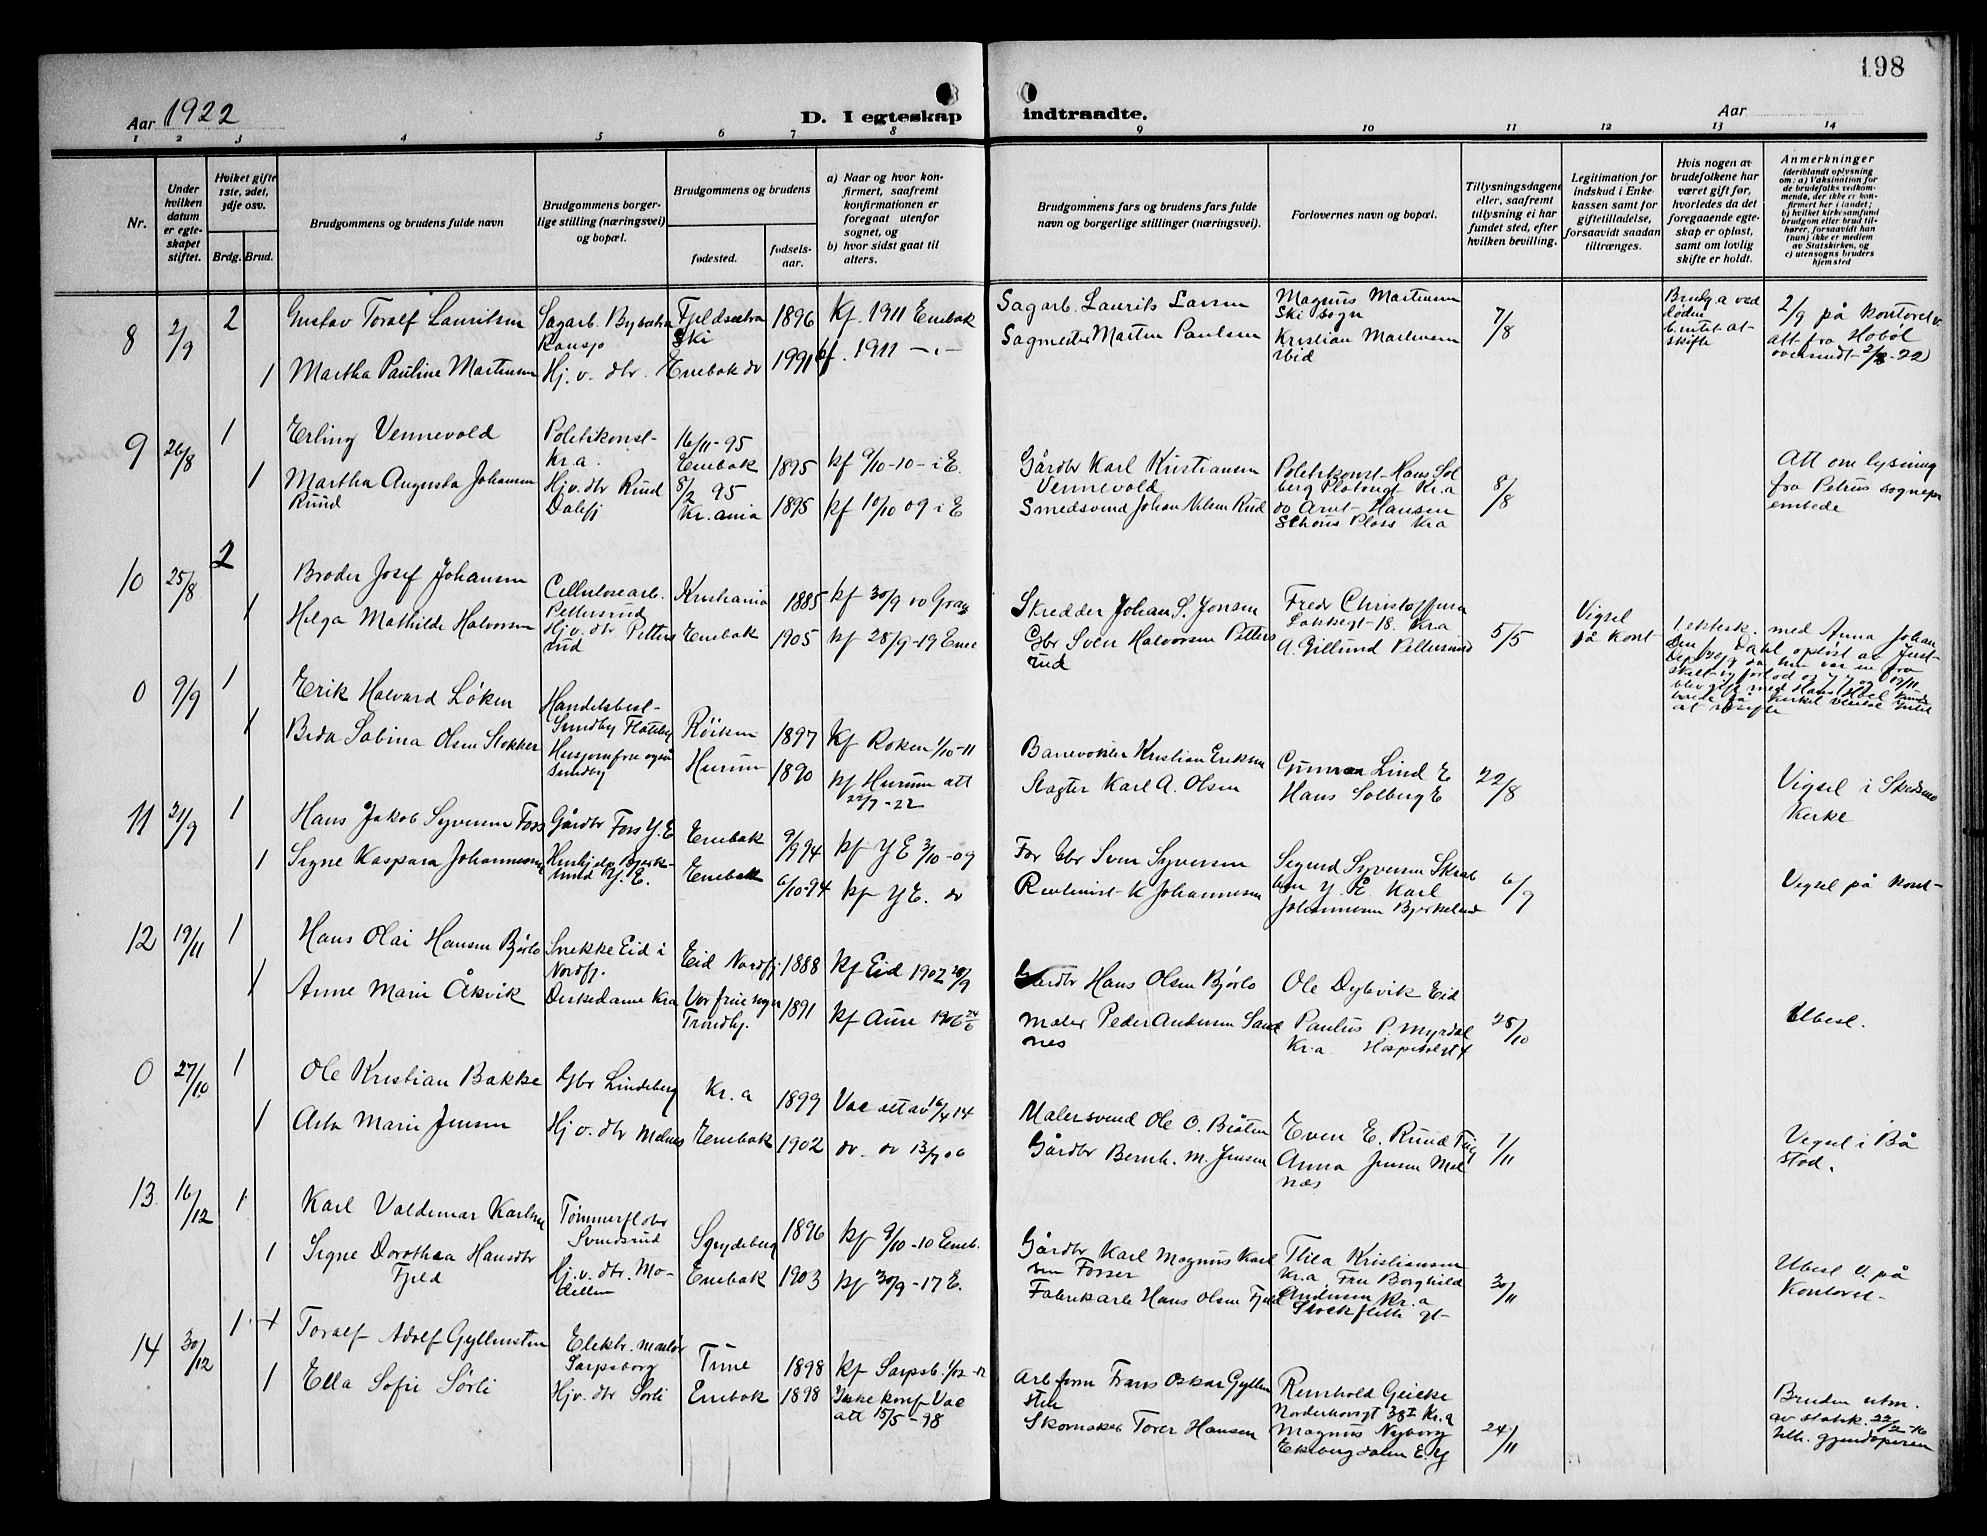 198
Aar 1922
D. I egteskap
indtraadte.
Aar
1 2 3 4 5 6 7 8 9 10 11 12 13 14
Nr.
Under hvilken datum er egteskapet stiftet.
Hvilket gifte 1ste, 2det, 3dje osv.
Brdg. Brud.
Brudgommens og brudens fulde navn
Brudgommens borgerlige stilling (næringsvei) og bopæl.
Brudgommens og brudens
fødested.
fødselsaar.
a) Naar og hvor konfirmert, saafremt konfirmationen er foregaat utenfor sognet, og
b) hvor sidst gaat til alters.
Brudgommens fars og brudens fars fulde navn og borgerlige stillinger (næringsvei).
Forlovernes navn og bopæl.
Tillysningsdagene eller, saafremt tillysning ei har fundet sted, efter hvilken bevilling.
Legitimation for indskud i Enkekassen samt for giftetilladelse, forsaavidt saadan tiltrænges.
Hvis nogen av brudefolkene har været gift før, hvorledes da det foregaaende egteskap er opløst, samt om lovlig skifte er holdt.
Anmerkninger (deriblandt oplysning om: a) Vaksination for de brudefolks vedkommende, der ikke er konfirmert her i landet; b) hvilket kirkesamfund brudgom eller brud tilhører, forsaavidt han (hun) ikke er medlem av Statskirken, og c) utensogns bruders hjemsted
8 2/9 2 Gustav Toralf Lauritsen Sagarb. Ransjø Fjeldsætra Ski 1896 Kf. 1911 Enebak
Sagarb. Laurits Larsen Magnus Martinsen Ski sogn 7/8 Brudg. a ved døden 2/9 på Kontoret
1 Martha Pauline Martinsen Hj. v. dtr. Enebak 1991 kf. 1911 -„-
Sagmester Martin Paulsen Kristian Martinsen ibid att fra Hobøl
9 26/8 1 Erling Vennevold Politikonst- Kr.a. 16/11-95 Enebak 1895 kf 9/10-10- i E.
Gårdbr Karl Kristiansen Vennevold Politikonst- Hans Solberg Kr.a 8/8 Att om lysning fra Petrus sognepr embede
1 Martha Augusta Johansen Ruud Hj v. dtr Ruud Dalefj 8/2 95 Kr.ania 1895 kf 10/10 09 i E
Smedsvend Johan Nilsen Rud do Arnt Hansen Schous Plass Kra
10 25/8 2 Broder Josef Johansen Cellulosearb. Pettersrud Kristiania 1885 kf 30/9 00
Skredder Johan S. Jonsen Fredr Christoffersen Kra 5/5 Vigsel på Kont-
1 Helga Mathilde Halvorsen Hj v. dtr Pettersrud Enebak 1905 kf 28/9-19 Ene
Gbr Sven Halvorsen Pettersrud A. Gillund Pettersrud
1 ektesk. med Anna Johan
0 9/9 1 Erik Halvard Løken Handelsbest- Sundby Flateby Röiken 1897 Kf Röken 1/10-11
Banevokter Kristian Eriksen Gunnar Lind E 22/8 Vigsel i Skedsmo Kirke
1 Sabina Olsen Stokker Husjomfru også Sundby Hurum 1890 kf Hurum att 22/7-22
Slagter Karl A. Olsen Hans Solberg E
11 21/9 1 Hans Jakob Syversen Foss Gårdbr Foss Y. E Enebak 9/9 94 kf Y E 3/10-09
Far Gbr Sven Syversen Sigurd Syversen Y. E. 6/9 Vigsel på Kont-
1 Signe Kaspara Johannesen Hushjelp Bjerkelund Y. E. Enebak 6/10-94 kf Y E. do
K Johannesen Karl Johannesen Bjerkelund
12 19/11 1 Hans Olai Hansen Bjørlo Snekke Eid i Nordfj. Eid Nordfj. 1888 kf Eid 1902 28/9
Gårdbr Hans Olsen Bjørlo Ole Dybvik Eid 25/10 Ubesl.
1 Anne Marie Åkvik Diskedame Kra Vor frue sogn Trondhj. 1891 kf Aure 1906
Maler Peder Andersen Sandnes Paulus P. Myrdal Kr.a Hospitalsgt 4
0 27/10 1 Ole Kristian Bakke Gbr Lindeberg Kr.a 1899 Vac att av 16/4 14
Malersvend Ole O. Even E. Ruud 1/11 Vigsel i Båstad.
1 Asta Marie Jensen Hj v. dtr Melnes Enebak 1902 do. do 13/7 06
Gårdbr Bernh. M. Jensen Anna Jensen Melnæs
13 16/12 1 Karl Valdemar Karlsen Tømmerfløter Svendsrud Spydeberg 1896 kf 9/10-10 Eneb.
Gårdbr Karl Magnus Karlsen Fosser Thila Kristiansen Kr.a 30/11 Ubesl V. på Kontoret-
1 Signe Dorothea Hansdtr Fjeld Hj. v. dtr. Enebak 1903 kf 30/9-17 E.
Fabrikarb Hans Olsen Fjeld Fru Borghild Andersen Kr.a Stockfleth gt-
14 30/12 1 + Toralf Adolf Gyllensten Elektr. montør Sarpsborg Tune 1898 kf Sarpsb. 1/12-12
Arb.form Frans Oskar Gyllensten Reinhold Geicke Norderhovsgt Kr.a 24/11 Bruden utm. av statsk. 22/2-16 tilh. gjendøperen
1 Ella Sofie Sörli Hj v. dtr Sörli Enebak 1898 Ikke konf Vac att 15/5-98
Skomaker Torer Hansen Magnus Nyborg Ekebergdalen E. Y